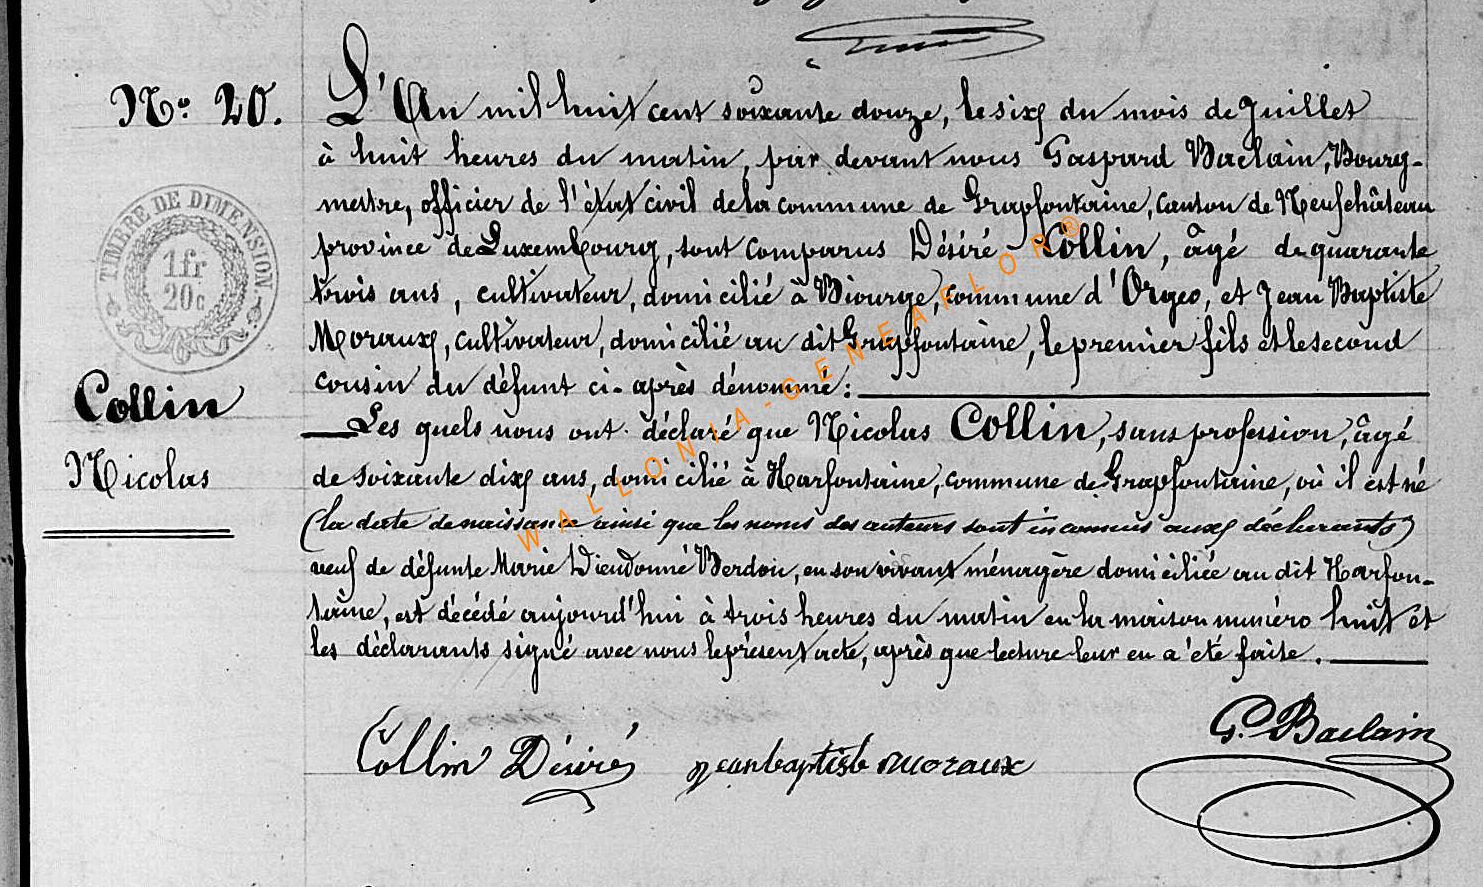 N.o 20.
L'An mil huit cent soixante douze, le six du mois de Juillet
à huit heures du matin, par devant nous Gaspard Baclain, Bourg-
mestre, officier de l'état civil de la commune de Grapfontaine, canton de Neufchâteau
province de Luxembourg, sont comparus Désiré Collin, âgé de quarante
trois ans, cultivateur, domicilié à Biourge, commune d'Orgeo, et Jean Baptiste
Moraux, cultivateur, domicilié au dit Grapfontaine, le premier fils et le second
cousin du défunt ci-après dénommé:
Collin
Nicolas
Les quels nous ont déclaré que Nicolas Collin, sans profession, âgé
de soixante dix ans, domicilié à Harfontaine, commune de Grapfontaine, où il est né
(la date de naissance ainsi que les noms des auteurs sont inconnus aux déclarants)
veuf de défunte Marie Dieudonné Berdoi, en son vivant ménagère domiciliée au dit Harfon-
taine, est décédé aujourd'hui à trois heures du matin en la maison numéro huit et
les déclarants signé avec nous le présent acte, après que lecture leur en a été faite.
Collin Désiré
jean baptiste moraux
G. Baclain
TIMBRE DE DIMENSION
1 fr
20 c
WALLONIA-GENEAFLOR®